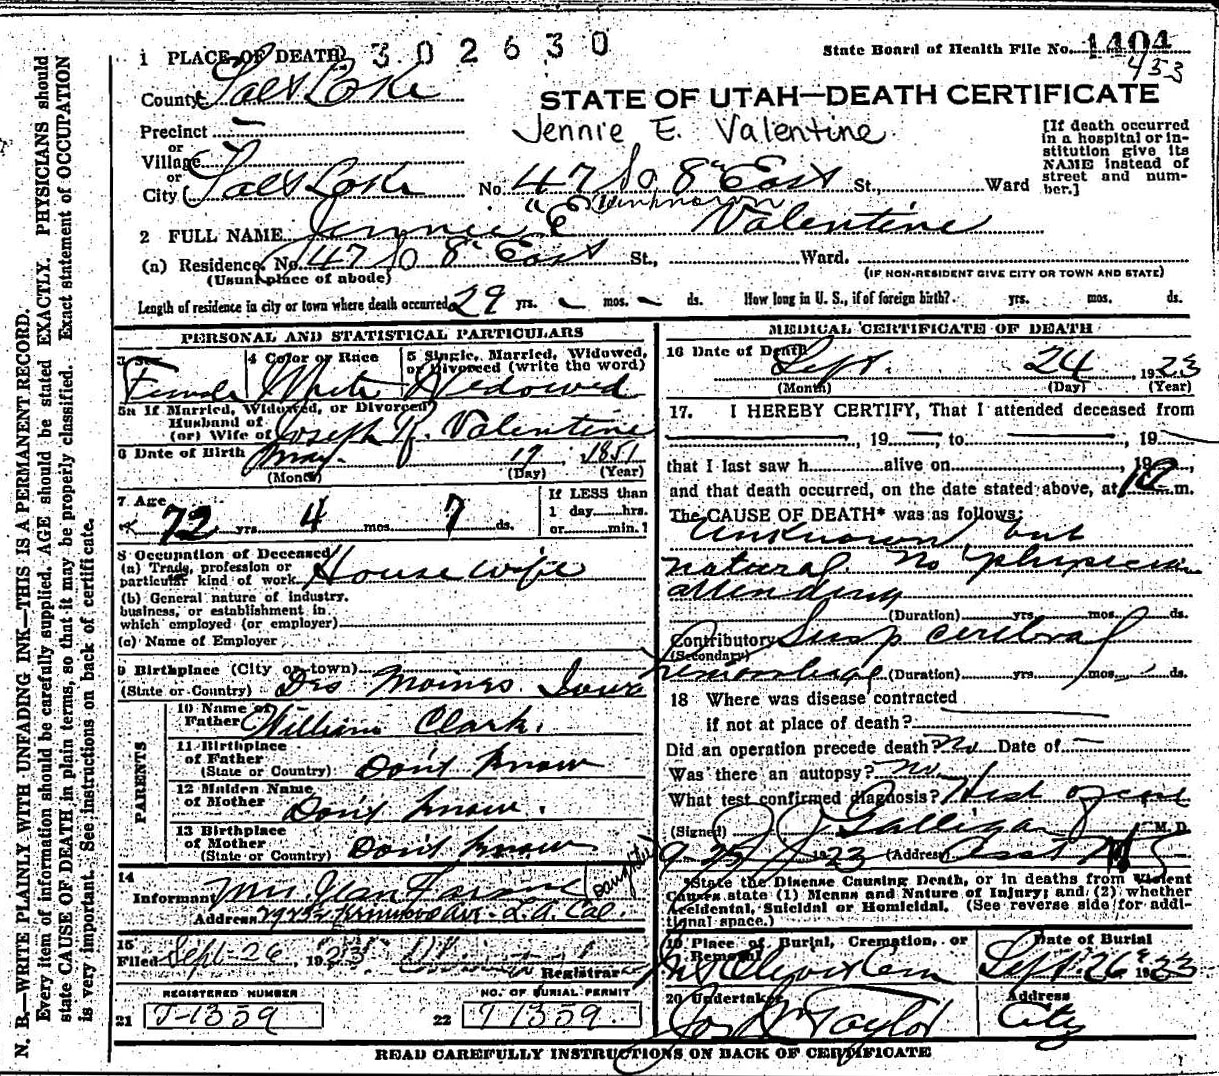 N. B.—WRITE PLAINLY WITH UNFADING INK—THIS IS A PERMANENT RECORD.
Every item of information should be carefully supplied. AGE should be stated EXACTLY. PHYSICIANS should
state CAUSE OF DEATH in plain terms, so that it may be properly classified. Exact statement of OCCUPATION
is very important. See instructions on back of certificate.
302630
State Board of Health File No. 1404
453
1 PLACE OF DEATH
County Salt Lake
STATE OF UTAH—DEATH CERTIFICATE
Jennie E. Valentine
Precinct —
or
Village
or
City Salt Lake No. 47 So 8" East St., Ward
[If death occurred
in a hospital or in-
stitution give its
NAME instead of
street and num-
ber.]
"E" unknown
2 FULL NAME Jennie E Valentine
(a) Residence. No. 47 So 8" East St., Ward.
(Usual place of abode) (IF NON-RESIDENT GIVE CITY OR TOWN AND STATE)
Length of residence in city or town where death occurred 29 yrs. – mos. – ds. How long in U. S., if of foreign birth? yrs. mos. ds.
PERSONAL AND STATISTICAL PARTICULARS
3 Sex
Female
4 Color or Race
White
5 Single, Married, Widowed,
or Divorced (write the word)
Widowed
5a If Married, Widowed, or Divorced
Husband of
(or) Wife of Joseph R. Valentine
6 Date of Birth May 17 1851
(Month) (Day) (Year)
7 Age
72 yrs. 4 mos. 7 ds.
If LESS than
1 day hrs.
or min.?
8 Occupation of Deceased
(a) Trade, profession or
particular kind of work. House wife
(b) General nature of industry,
business, or establishment in
which employed (or employer)
(c) Name of Employer
9 Birthplace (City or town)
(State or Country) Des Moines Iowa
PARENTS
10 Name of
Father William Clark.
11 Birthplace
of Father
(State or Country) Don't know
12 Maiden Name
of Mother Don't know.
13 Birthplace
of Mother
(State or Country) Don't know
14
Informant Mrs Jean (daughter)
Address Ave. L.A. Cal.
15
Filed Sept-26, 1923
Registrar
REGISTERED NUMBER
21 J-1359
NO. OF BURIAL PERMIT
22 J1359
MEDICAL CERTIFICATE OF DEATH
16 Date of Death Sept 24, 1923
(Month) (Day) (Year)
17. I HEREBY CERTIFY, That I attended deceased from
, 19 —, to —, 19 —
that I last saw h alive on , 19 ,
and that death occurred, on the date stated above, at m.
The CAUSE OF DEATH* was as follows:
Unknown but
natural no physician
attending
(Duration) yrs. mos. ds.
Contributory Susp cerebral
(Secondary)
hemorrhage (Duration) yrs. mos. ds.
18 Where was disease contracted
if not at place of death?
Did an operation precede death? No Date of —
Was there an autopsy? no
What test confirmed diagnosis? Hist of case
(Signed) J J Galligan M. D.
9 25, 1923 (Address) Asst
*State the Disease Causing Death, or in deaths from Violent
Causes state (1) Means and Nature of Injury; and (2) whether
Accidental, Suicidal or Homicidal. (See reverse side for addi-
tional space.)
19 Place of Burial, Cremation, or
Removal
Mt Olivet Cem
Date of Burial
Sept 26 1923
20 Undertaker
Jos Wm Taylor
Address
City
READ CAREFULLY INSTRUCTIONS ON BACK OF CERTIFICATE